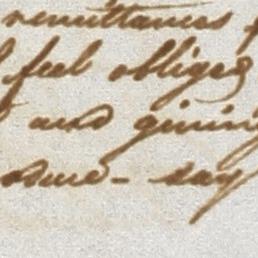 remittances
feel obliged
and giving
same - say